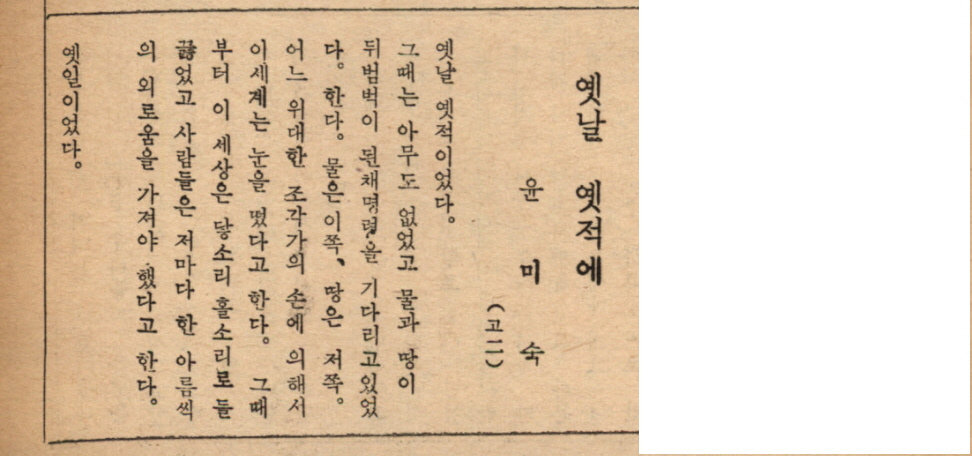 옛날 옛적에
윤 미 숙
(고二)
옛날 옛적이었다.
그때는 아무도 없었고 물과 땅이
뒤범벅이 된채명령을 기다리고있었
다. 한다. 물은이쪽、땅은 저쪽。
어느 위대한 조각가의 손에 의해서
이세계는 눈을 떴다고 한다。 그때
부터 이 세상은 닿소리 홀소리로 들
끓었고 사람들은 저마다 한 아름씩
의 외로움을 가져야 했다고 한다。
옛일이었다。